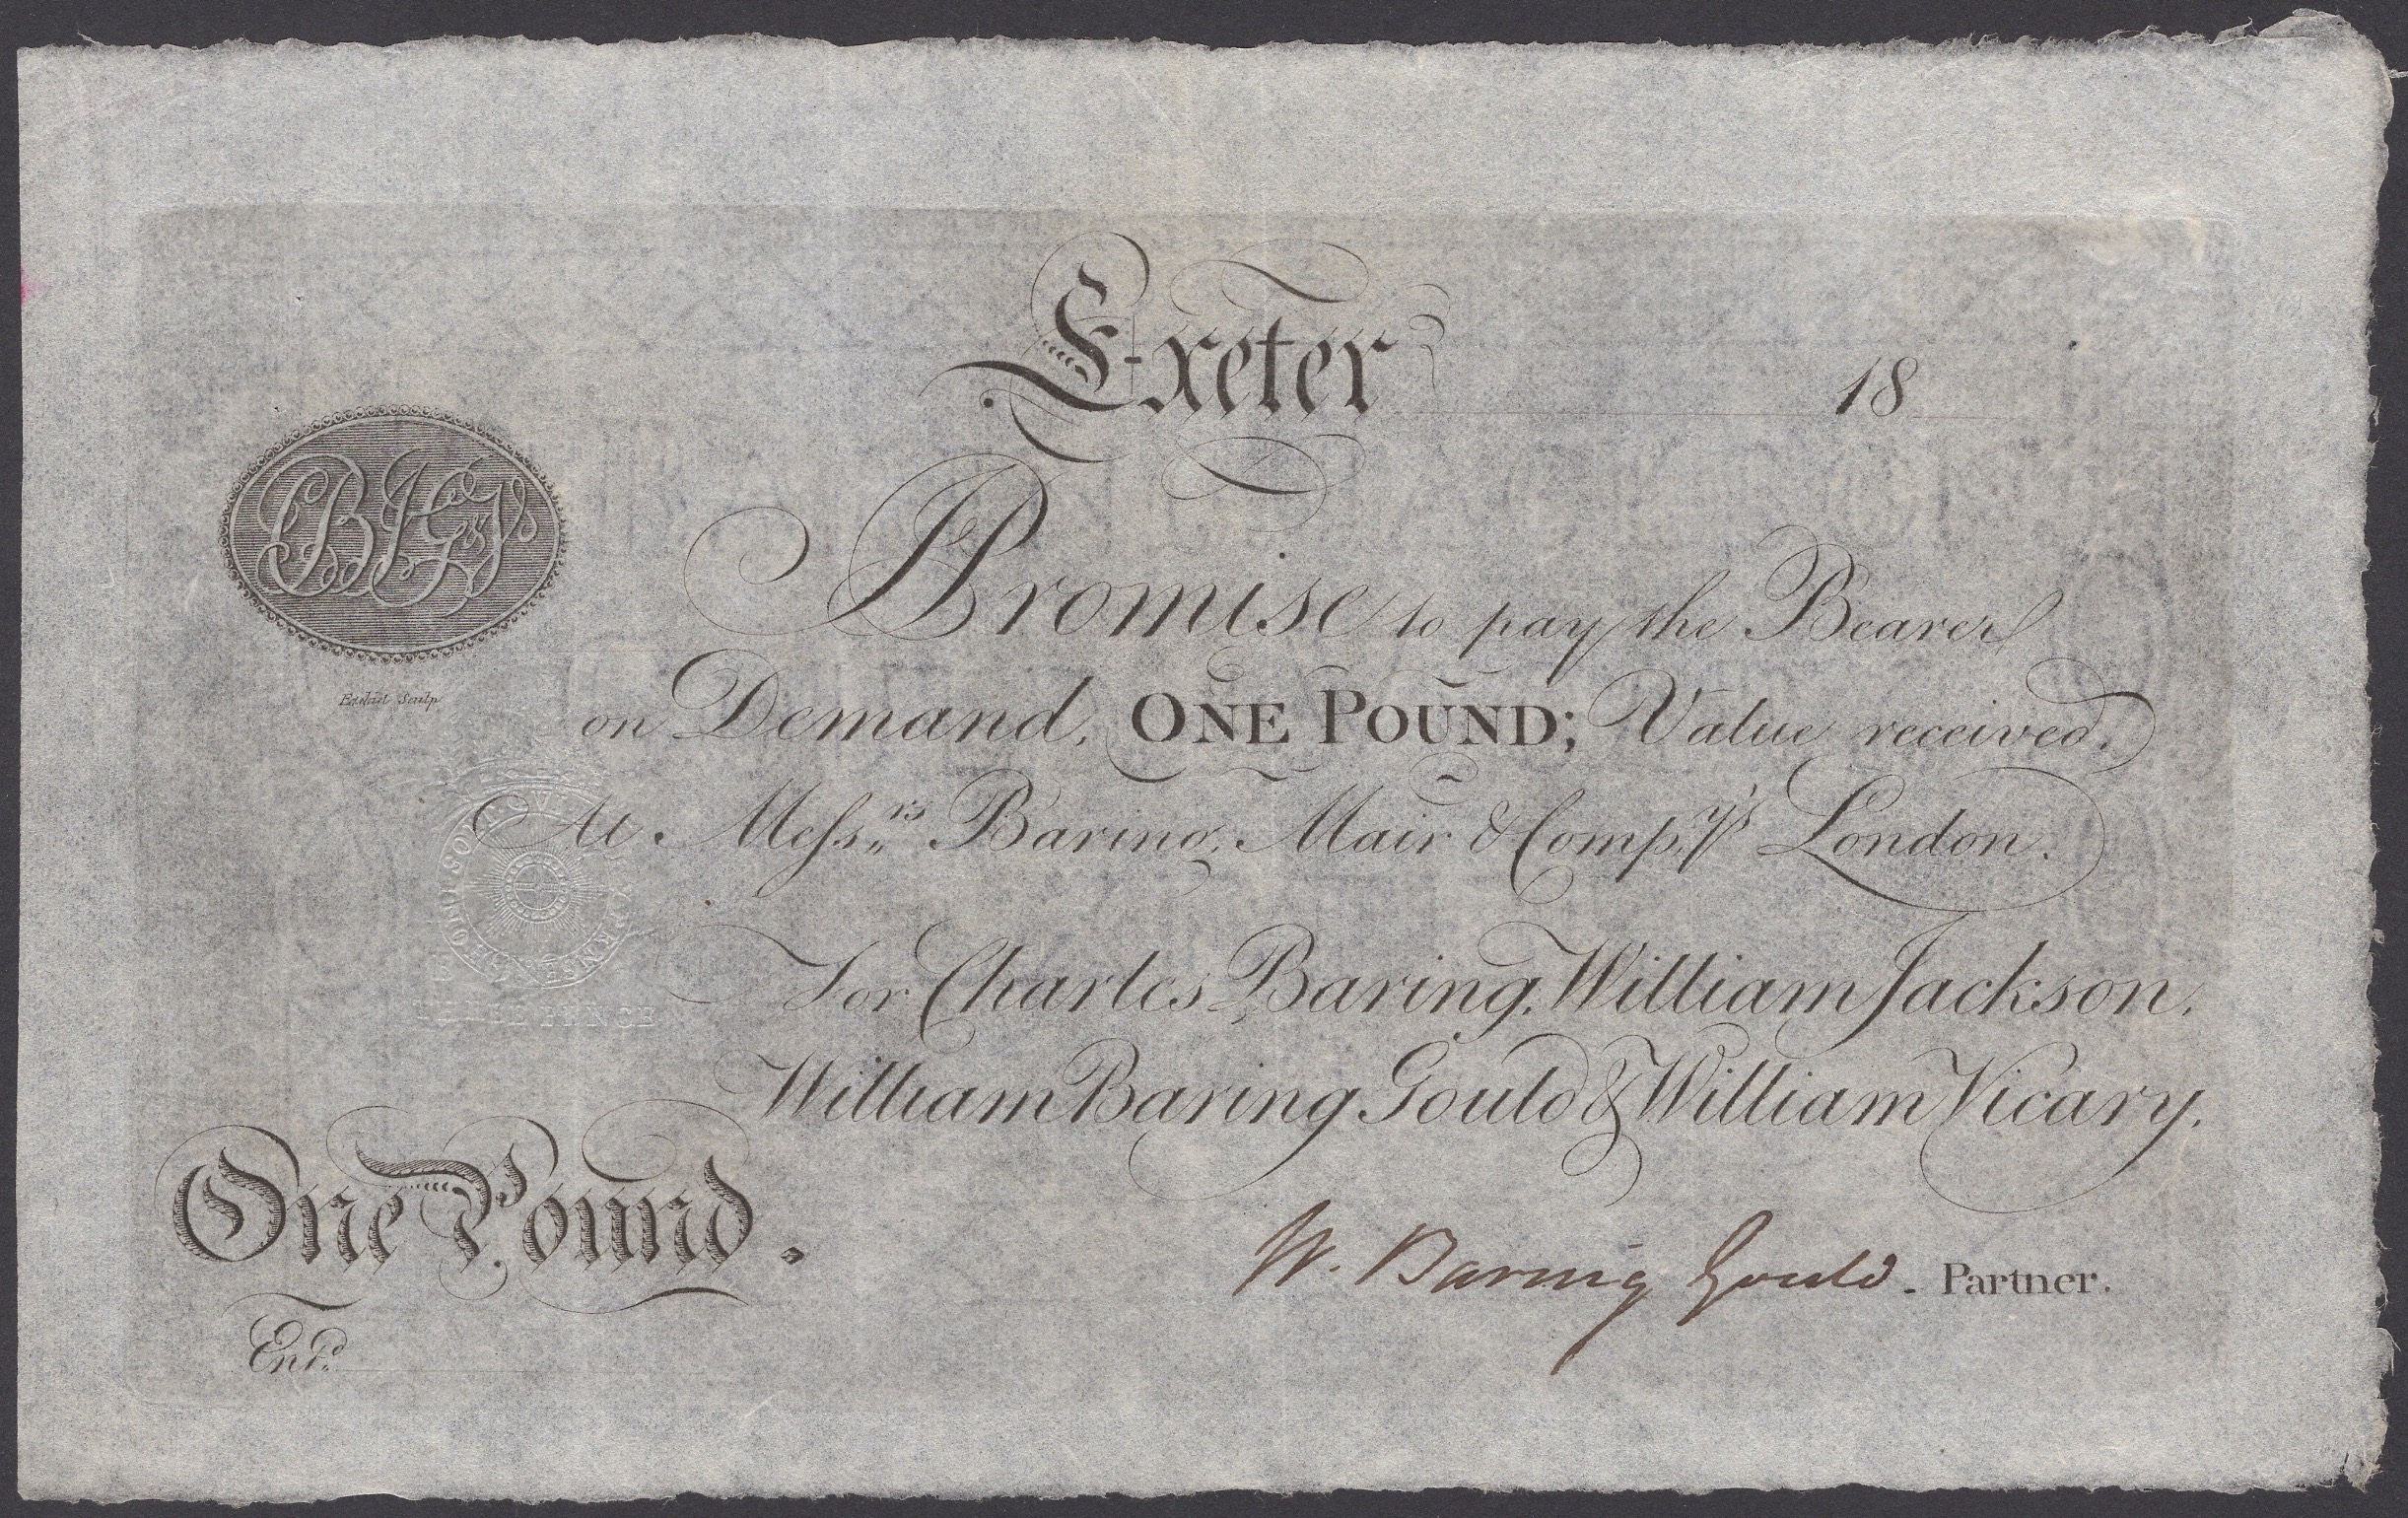 Exeter 18
BJG&V
I Promise to pay the Bearer
Ezekiel Sculp
on Demand, ONE POUND; Value received.
At Messrs. Baring, Mair & Compy's London.
For Charles Baring, William Jackson,
THREE PENCE
William Baring Gould & William Vicary.
One Pound.
W. Baring Gould. Partner.
Entd.